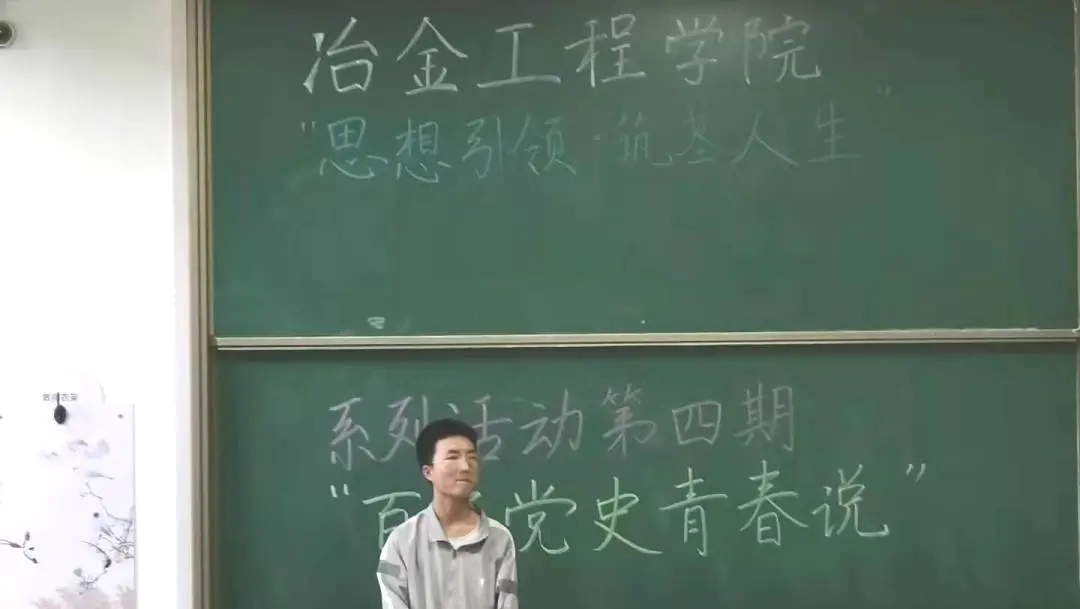 冶金工程学院
"思想引领·筑基人生"
系列活动第四期
"百 党史青春说"